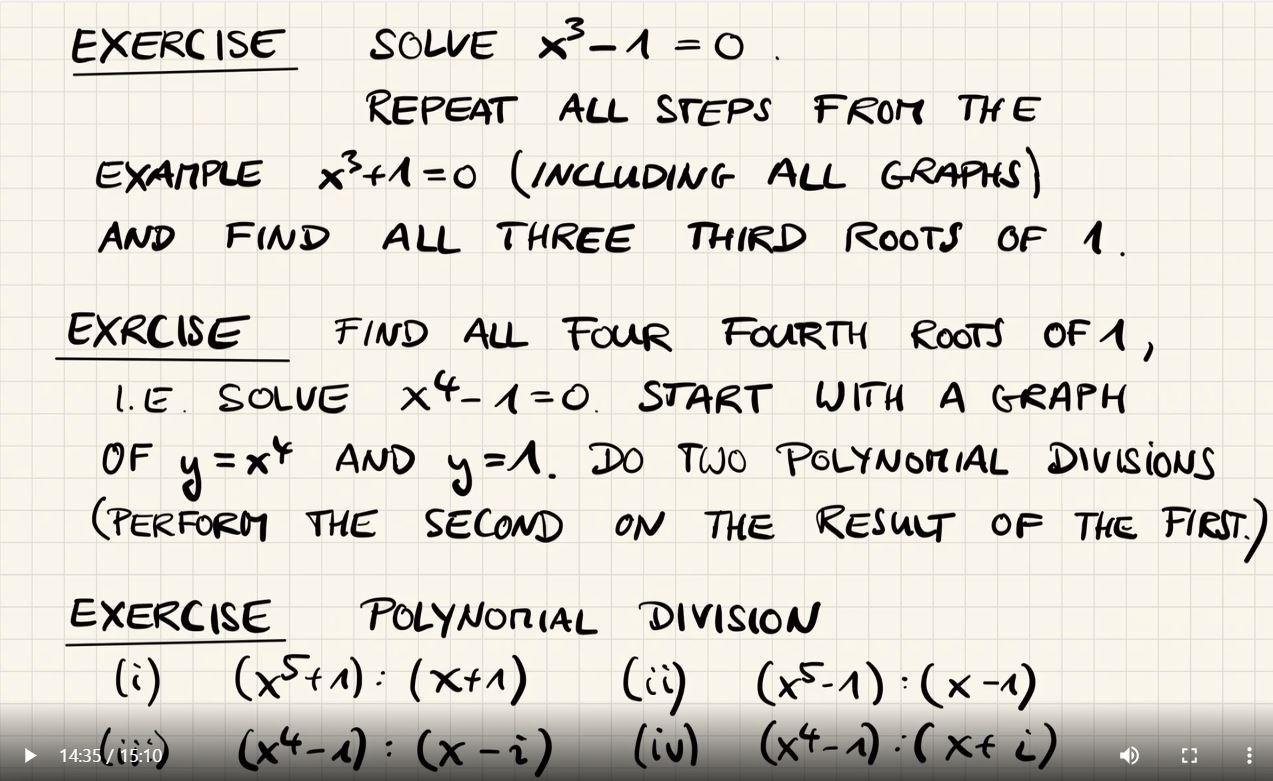 EXERCISE SOLVE x³-1 = 0.
REPEAT ALL STEPS FROM THE
EXAMPLE x³+1=0 (INCLUDING ALL GRAPHS)
AND FIND ALL THREE THIRD ROOTS OF 1.
EXRCISE FIND ALL FOUR FOURTH ROOTS OF 1,
I.E. SOLVE x⁴-1=0. START WITH A GRAPH
OF y=x⁴ AND y=1. DO TWO POLYNOMIAL DIVISIONS
(PERFORM THE SECOND ON THE RESULT OF THE FIRST.)
EXERCISE POLYNOMIAL DIVISION
(i) (x⁵+1) : (x+1) (ii) (x⁵-1) : (x-1)
(iii) (x⁴-1) : (x-i) (iv) (x⁴-1) : (x+i)
14:35 / 15:10